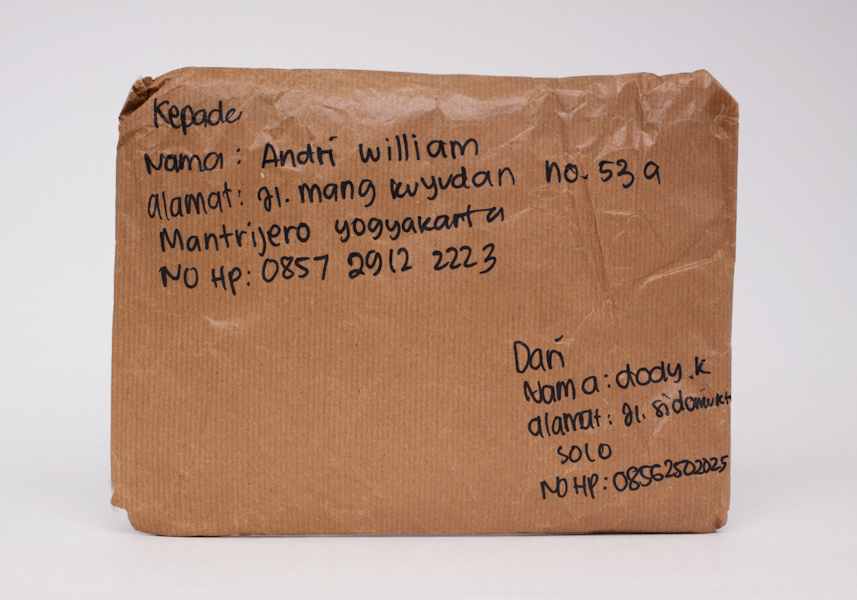 Kepada
Nama : Andri william
alamat : Jl. mang kuyudan no. 53 a
Mantrijero yogyakarta
NO HP : 0857 2912 2223
Dari
Nama : dody . k
alamat : Jl. sidomukti
solo
NO HP : 08562502025